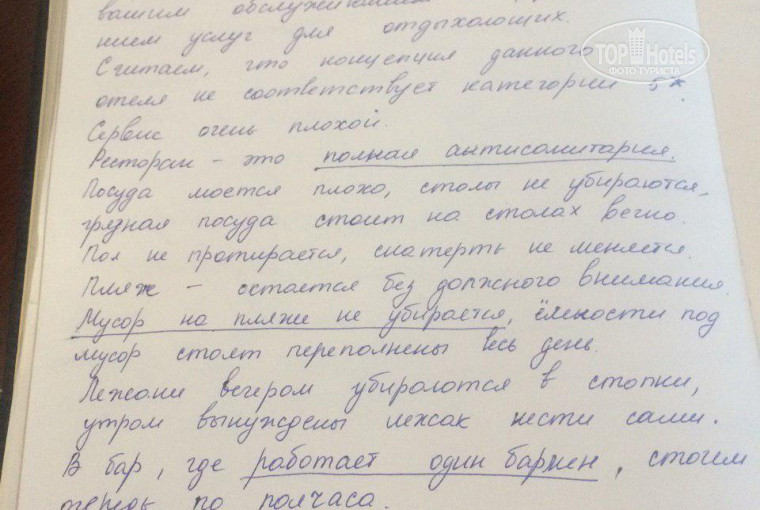 вашим обслуживанием
нием услуг для отдыхающих.
Считаем, что концепция данного
отеля не соответствует категории 5*.
Сервис очень плохой.
Ресторан - это полная антисанитария.
Посуда моется плохо, столы не убираются,
грязная посуда стоит на столах вечно.
Пол не протирается, скатерть не меняется.
Пляж - остается без должного внимания.
Мусор на пляже не убирается, ёмкости под
мусор стоят переполнены весь день.
Лежаки вечером убираются в стопки,
утром вынуждены лежак нести сами.
В бар, где работает один бармен, стоим
по полчаса.
TOP Hotels
ФОТО ТУРИСТА